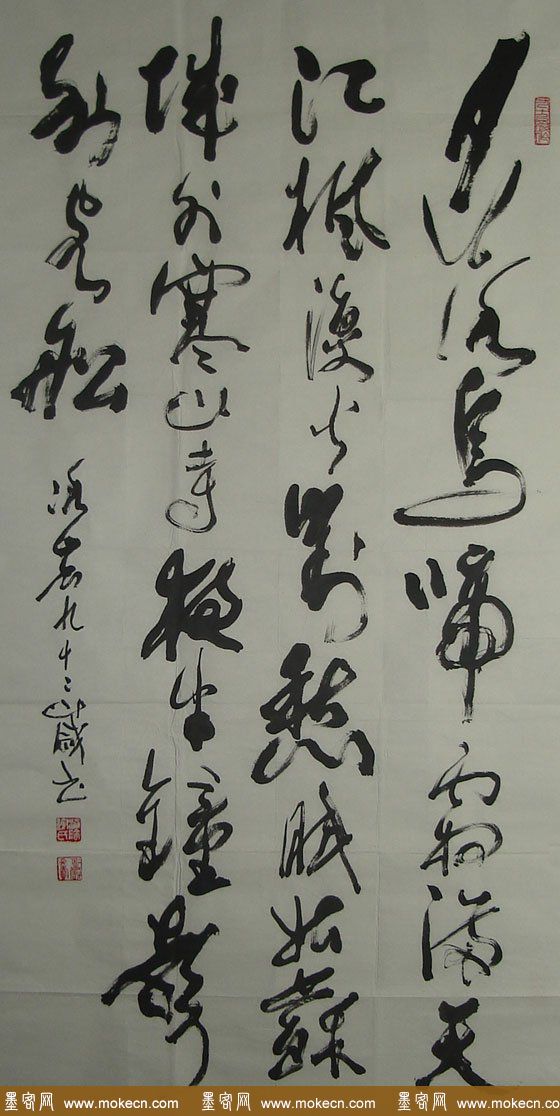 月落烏啼霜滿天
江楓漁火對愁眠姑蘇
城外寒山寺夜半鐘聲
到客船
九十二歲書
墨客网 www.mokecn.com 墨客网 www.mokecn.com 墨客网 www.mokecn.com